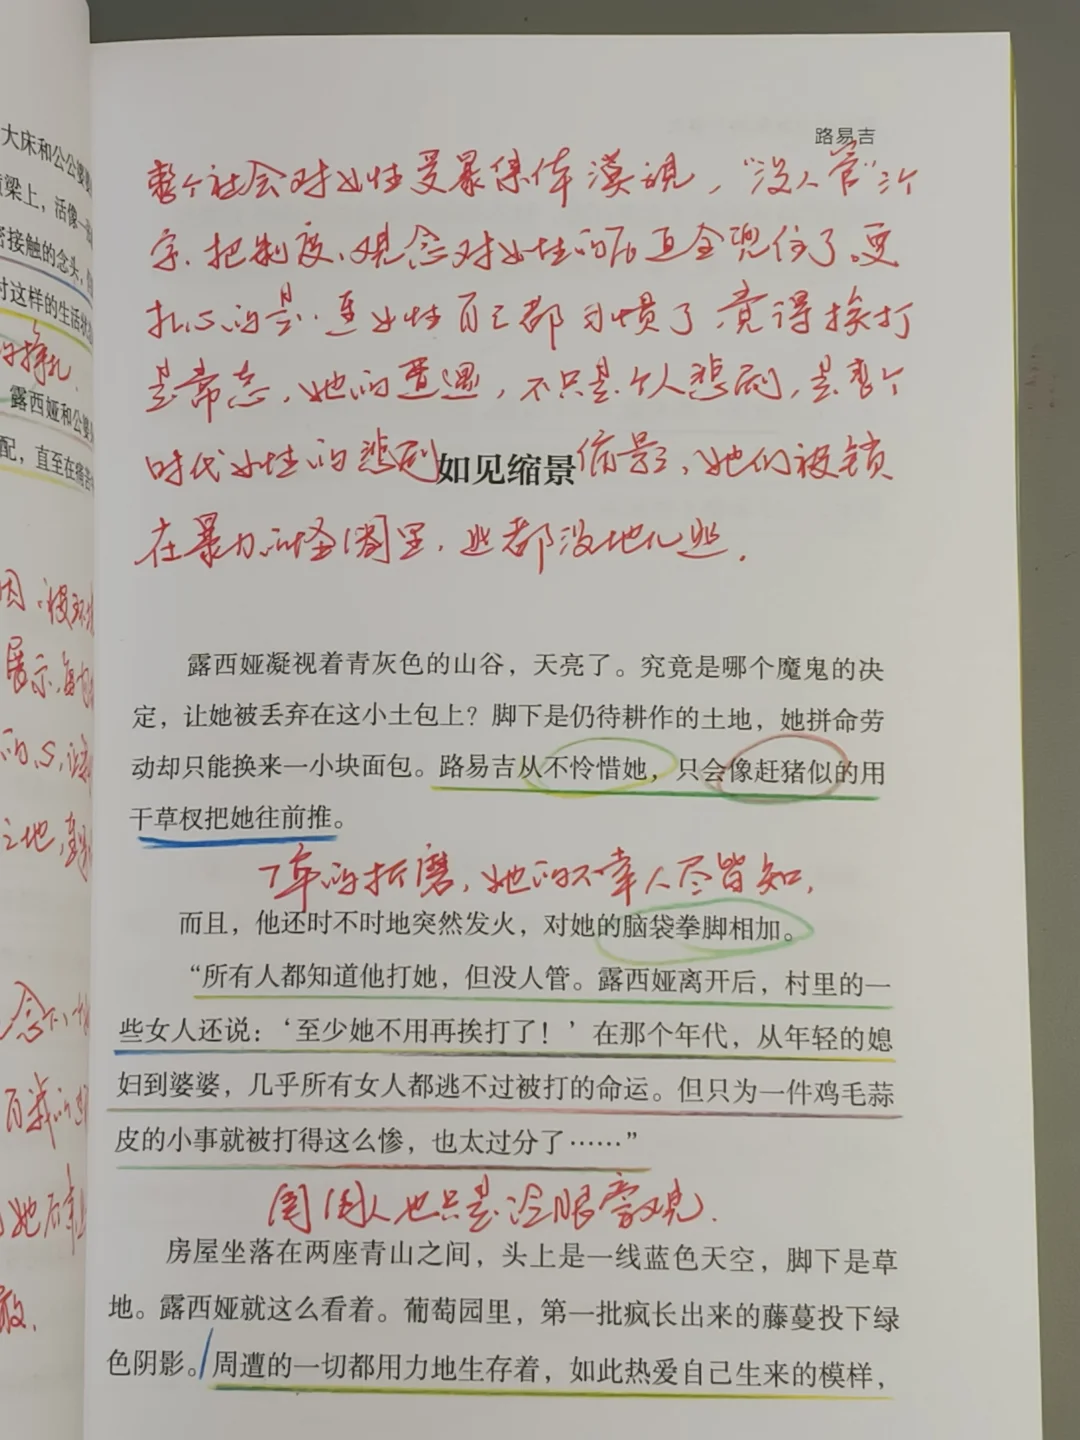 大床和公公婆
梁上，活像一
密接触的念头，
对这样的生活状态
的挣扎
露西娅和公婆
配，直至在痛苦
因
展示
之地
念
她
路易吉
整个社会对女性受暴集体漠视，“没人管”三个
字，把制度、观念对女性的压迫全兜住了。更
扎心的是，连女性自己都习惯了，竟得挨打
是常态，她的遭遇，不只是个人悲剧，是整个
时代女性的悲剧
如见缩景
缩影，她们被锁
在暴力的怪圈里，逃都没地儿逃.
露西娅凝视着青灰色的山谷，天亮了。究竟是哪个魔鬼的决
定，让她被丢弃在这小土包上？脚下是仍待耕作的土地，她拼命劳
动却只能换来一小块面包。路易吉从不怜惜她，只会像赶猪似的用
干草杈把她往前推。
7年的折磨，她的不幸人尽皆知，
而且，他还时不时地突然发火，对她的脑袋拳脚相加。
“所有人都知道他打她，但没人管。露西娅离开后，村里的一
些女人还说：‘至少她不用再挨打了！’在那个年代，从年轻的媳
妇到婆婆，几乎所有女人都逃不过被打的命运。但只为一件鸡毛蒜
皮的小事就被打得这么惨，也太过分了……”
周围人也只是冷眼旁观.
房屋坐落在两座青山之间，头上是一线蓝色天空，脚下是草
地。露西娅就这么看着。葡萄园里，第一批疯长出来的藤蔓投下绿
色阴影。周遭的一切都用力地生存着，如此热爱自己生来的模样，